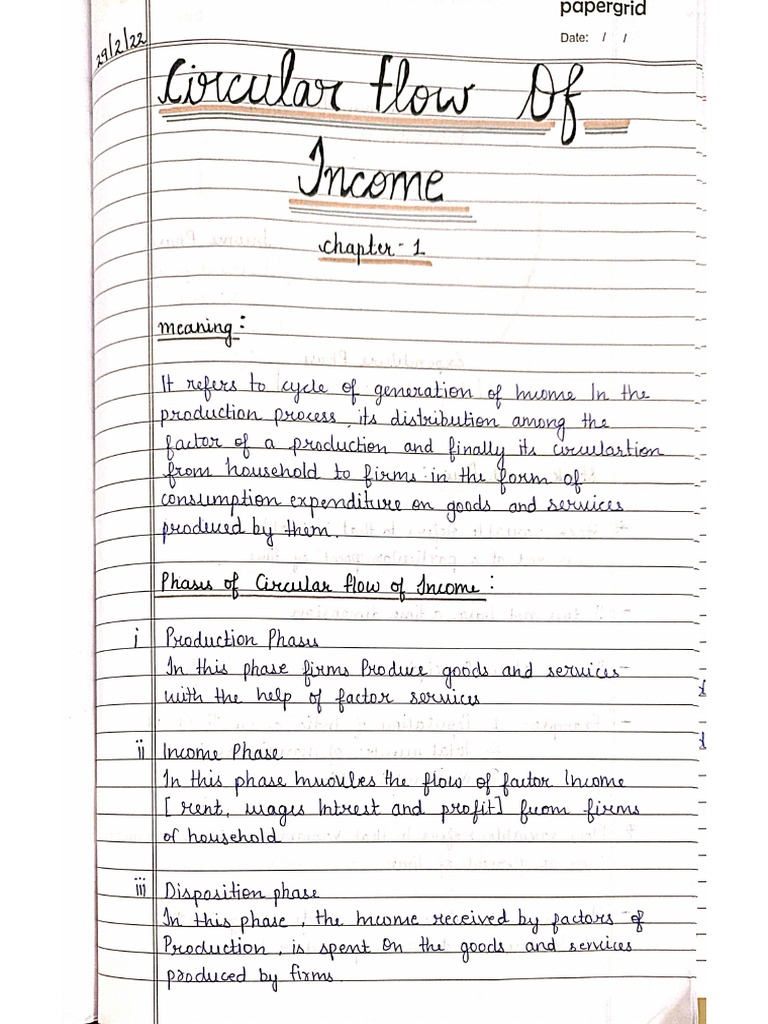 papergrid
Date: / /
29/2/22
Circular flow Of
Income
chapter - 1
meaning :
It refers to cycle of generation of Income In the
production process, its distribution among the
factor of a production and finally its circulartion
from household to firms in the form of
consumption expenditure on goods and services
produced by them.
Phases of Circular flow of Income :
i Production Phases
In this phase firms Produce goods and services
with the help of factor services
ii Income Phase
In this phase Involves the flow of factor Income
[ rent, wages Intrest and profit] from firms
of household
iii Disposition phase
In this phase, the Income received by factors of
Production, is spent On the goods and services
produced by firms.